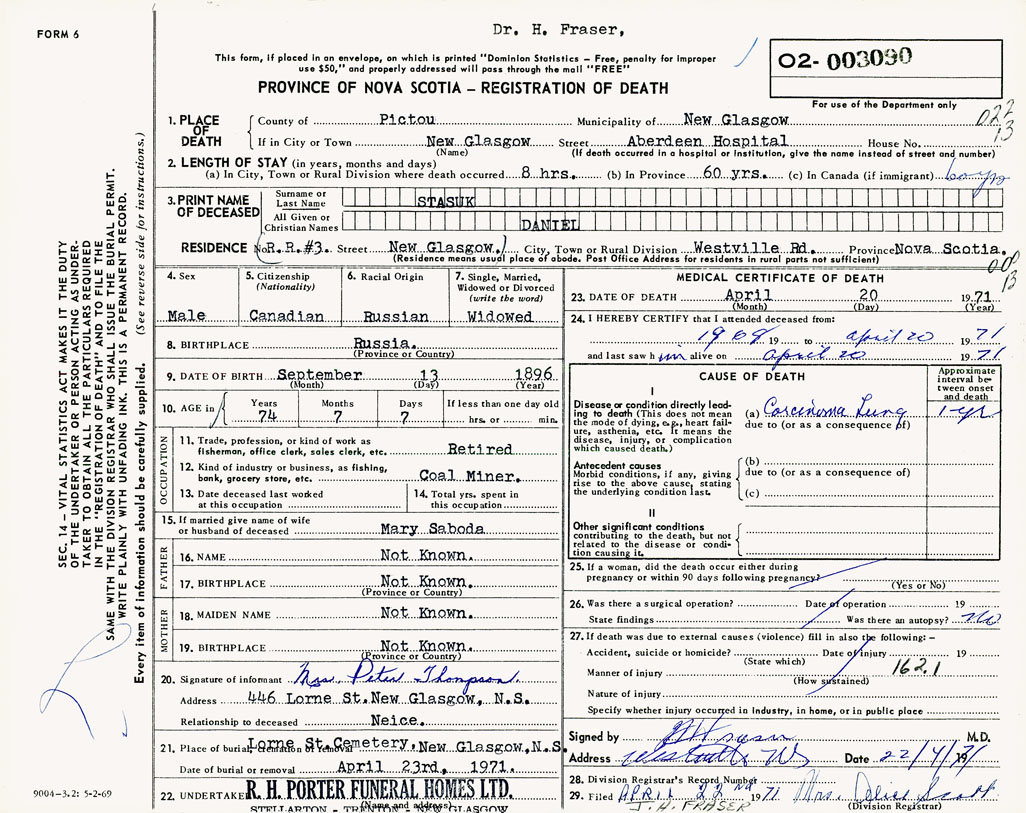 Dr. H. Fraser,
FORM 6
This form, if placed in an envelope, on which is printed "Dominion Statistics – Free, penalty for improper
use $50," and properly addressed will pass through the mail "FREE"
O2- 003090
PROVINCE OF NOVA SCOTIA – REGISTRATION OF DEATH
For use of the Department only
022
13
1. PLACE OF DEATH
County of Pictou Municipality of New Glasgow
If in City or Town New Glasgow Street Aberdeen Hospital House No.
(Name) (If death occurred in a hospital or institution, give the name instead of street and number)
2. LENGTH OF STAY (in years, months and days)
(a) In City, Town or Rural Division where death occurred 8 hrs. (b) In Province 60 yrs. (c) In Canada (if immigrant) 60 yrs
3. PRINT NAME OF DECEASED
Surname or Last Name STASUK
All Given or Christian Names DANIEL
RESIDENCE No R.R.#3. Street New Glasgow. City, Town or Rural Division Westville Rd. Province Nova Scotia.
(Residence means usual place of abode. Post Office Address for residents in rural parts not sufficient)
13
4. Sex
Male
5. Citizenship
(Nationality)
Canadian
6. Racial Origin
Russian
7. Single, Married,
Widowed or Divorced
(write the word)
Widowed
8. BIRTHPLACE Russia.
(Province or Country)
9. DATE OF BIRTH September 13 1896
(Month) (Day) (Year)
10. AGE in Years Months Days If less than one day old
74 7 7 hrs. or min.
OCCUPATION
11. Trade, profession, or kind of work as
fisherman, office clerk, sales clerk, etc. Retired
12. Kind of industry or business, as fishing,
bank, grocery store, etc. Coal Miner.
13. Date deceased last worked
at this occupation
14. Total yrs. spent in
this occupation
15. If married give name of wife
or husband of deceased Mary Saboda
FATHER
16. NAME Not Known.
17. BIRTHPLACE Not Known.
(Province or Country)
MOTHER
18. MAIDEN NAME Not Known.
19. BIRTHPLACE Not Known.
(Province or Country)
20. Signature of informant Mrs. Peter Thompson.
Address 446 Lorne St. New Glasgow, N.S.
Relationship to deceased Neice.
21. Place of burial, cremation or removal Lorne St. Cemetery, New Glasgow, N.S.
Date of burial or removal April 23rd, 1971.
22. UNDERTAKER R. H. PORTER FUNERAL HOMES LTD.
(Name and address)
STELLARTON - TRENTON - NEW GLASGOW
MEDICAL CERTIFICATE OF DEATH
23. DATE OF DEATH April 20 1971
(Month) (Day) (Year)
24. I HEREBY CERTIFY that I attended deceased from:
1968 19 to april 20 1971
and last saw him alive on april 20 1971
CAUSE OF DEATH
Approximate
interval be-
tween onset
and death
I
Disease or condition directly lead-
ing to death (This does not mean
the mode of dying, e.g., heart fail-
ure, asthenia, etc. It means the
disease, injury, or complication
which caused death.)
(a) Carcinoma Lung 1 yr
due to (or as a consequence of)
Antecedent causes
Morbid conditions, if any, giving
rise to the above cause, stating
the underlying condition last.
(b)
due to (or as a consequence of)
(c)
II
Other significant conditions
contributing to the death, but not
related to the disease or condi-
tion causing it.
25. If a woman, did the death occur either during
pregnancy or within 90 days following pregnancy?
(Yes or No)
26. Was there a surgical operation? Date of operation 19
State findings Was there an autopsy? No
27. If death was due to external causes (violence) fill in also the following: –
Accident, suicide or homicide? Date of injury 19
(State which)
Manner of injury 1621
(How sustained)
Nature of injury
Specify whether injury occurred in Industry, in home, or in public place
Signed by M.D.
Address Date 22/4/71
28. Division Registrar's Record Number
29. Filed APRIL 22nd 1971 Mrs.
J. H. FRASER (Division Registrar)
SEC. 14 – VITAL STATISTICS ACT MAKES IT THE DUTY
OF THE UNDERTAKER OR PERSON ACTING AS UNDER-
TAKER TO OBTAIN ALL THE PARTICULARS REQUIRED
IN THE "REGISTRATION OF DEATH" AND TO FILE THE
SAME WITH THE DIVISION REGISTRAR WHO SHALL ISSUE THE BURIAL PERMIT.
WRITE PLAINLY WITH UNFADING INK. THIS IS A PERMANENT RECORD.
Every item of information should be carefully supplied. (See reverse side for instructions.)
9004-3.2: 5-2-69